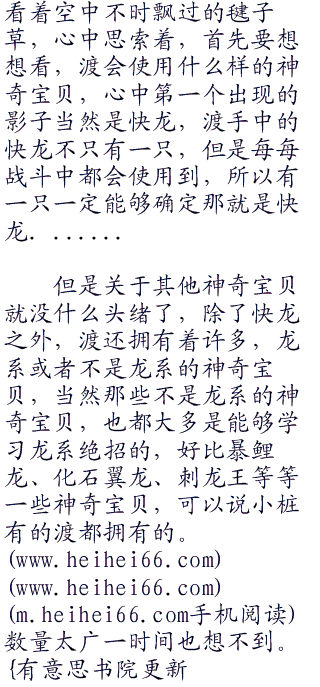 看着空中不时飘过的毽子
草，心中思索着，首先要想
想看，渡会使用什么样的神
奇宝贝，心中第一个出现的
影子当然是快龙，渡手中的
快龙不只有一只，但是每每
战斗中都会使用到，所以有
一只一定能够确定那就是快
龙.......
但是关于其他神奇宝贝
就没什么头绪了，除了快龙
之外，渡还拥有着许多，龙
系或者不是龙系的神奇宝
贝，当然那些不是龙系的神
奇宝贝，也都大多是能够学
习龙系绝招的，好比暴鲤
龙、化石翼龙、刺龙王等等
一些神奇宝贝，可以说小桩
有的渡都拥有的。
(www.heihei66.com)
(www.heihei66.com)
(m.heihei66.com手机阅读)
数量太广一时间也想不到。
{有意思书院更新